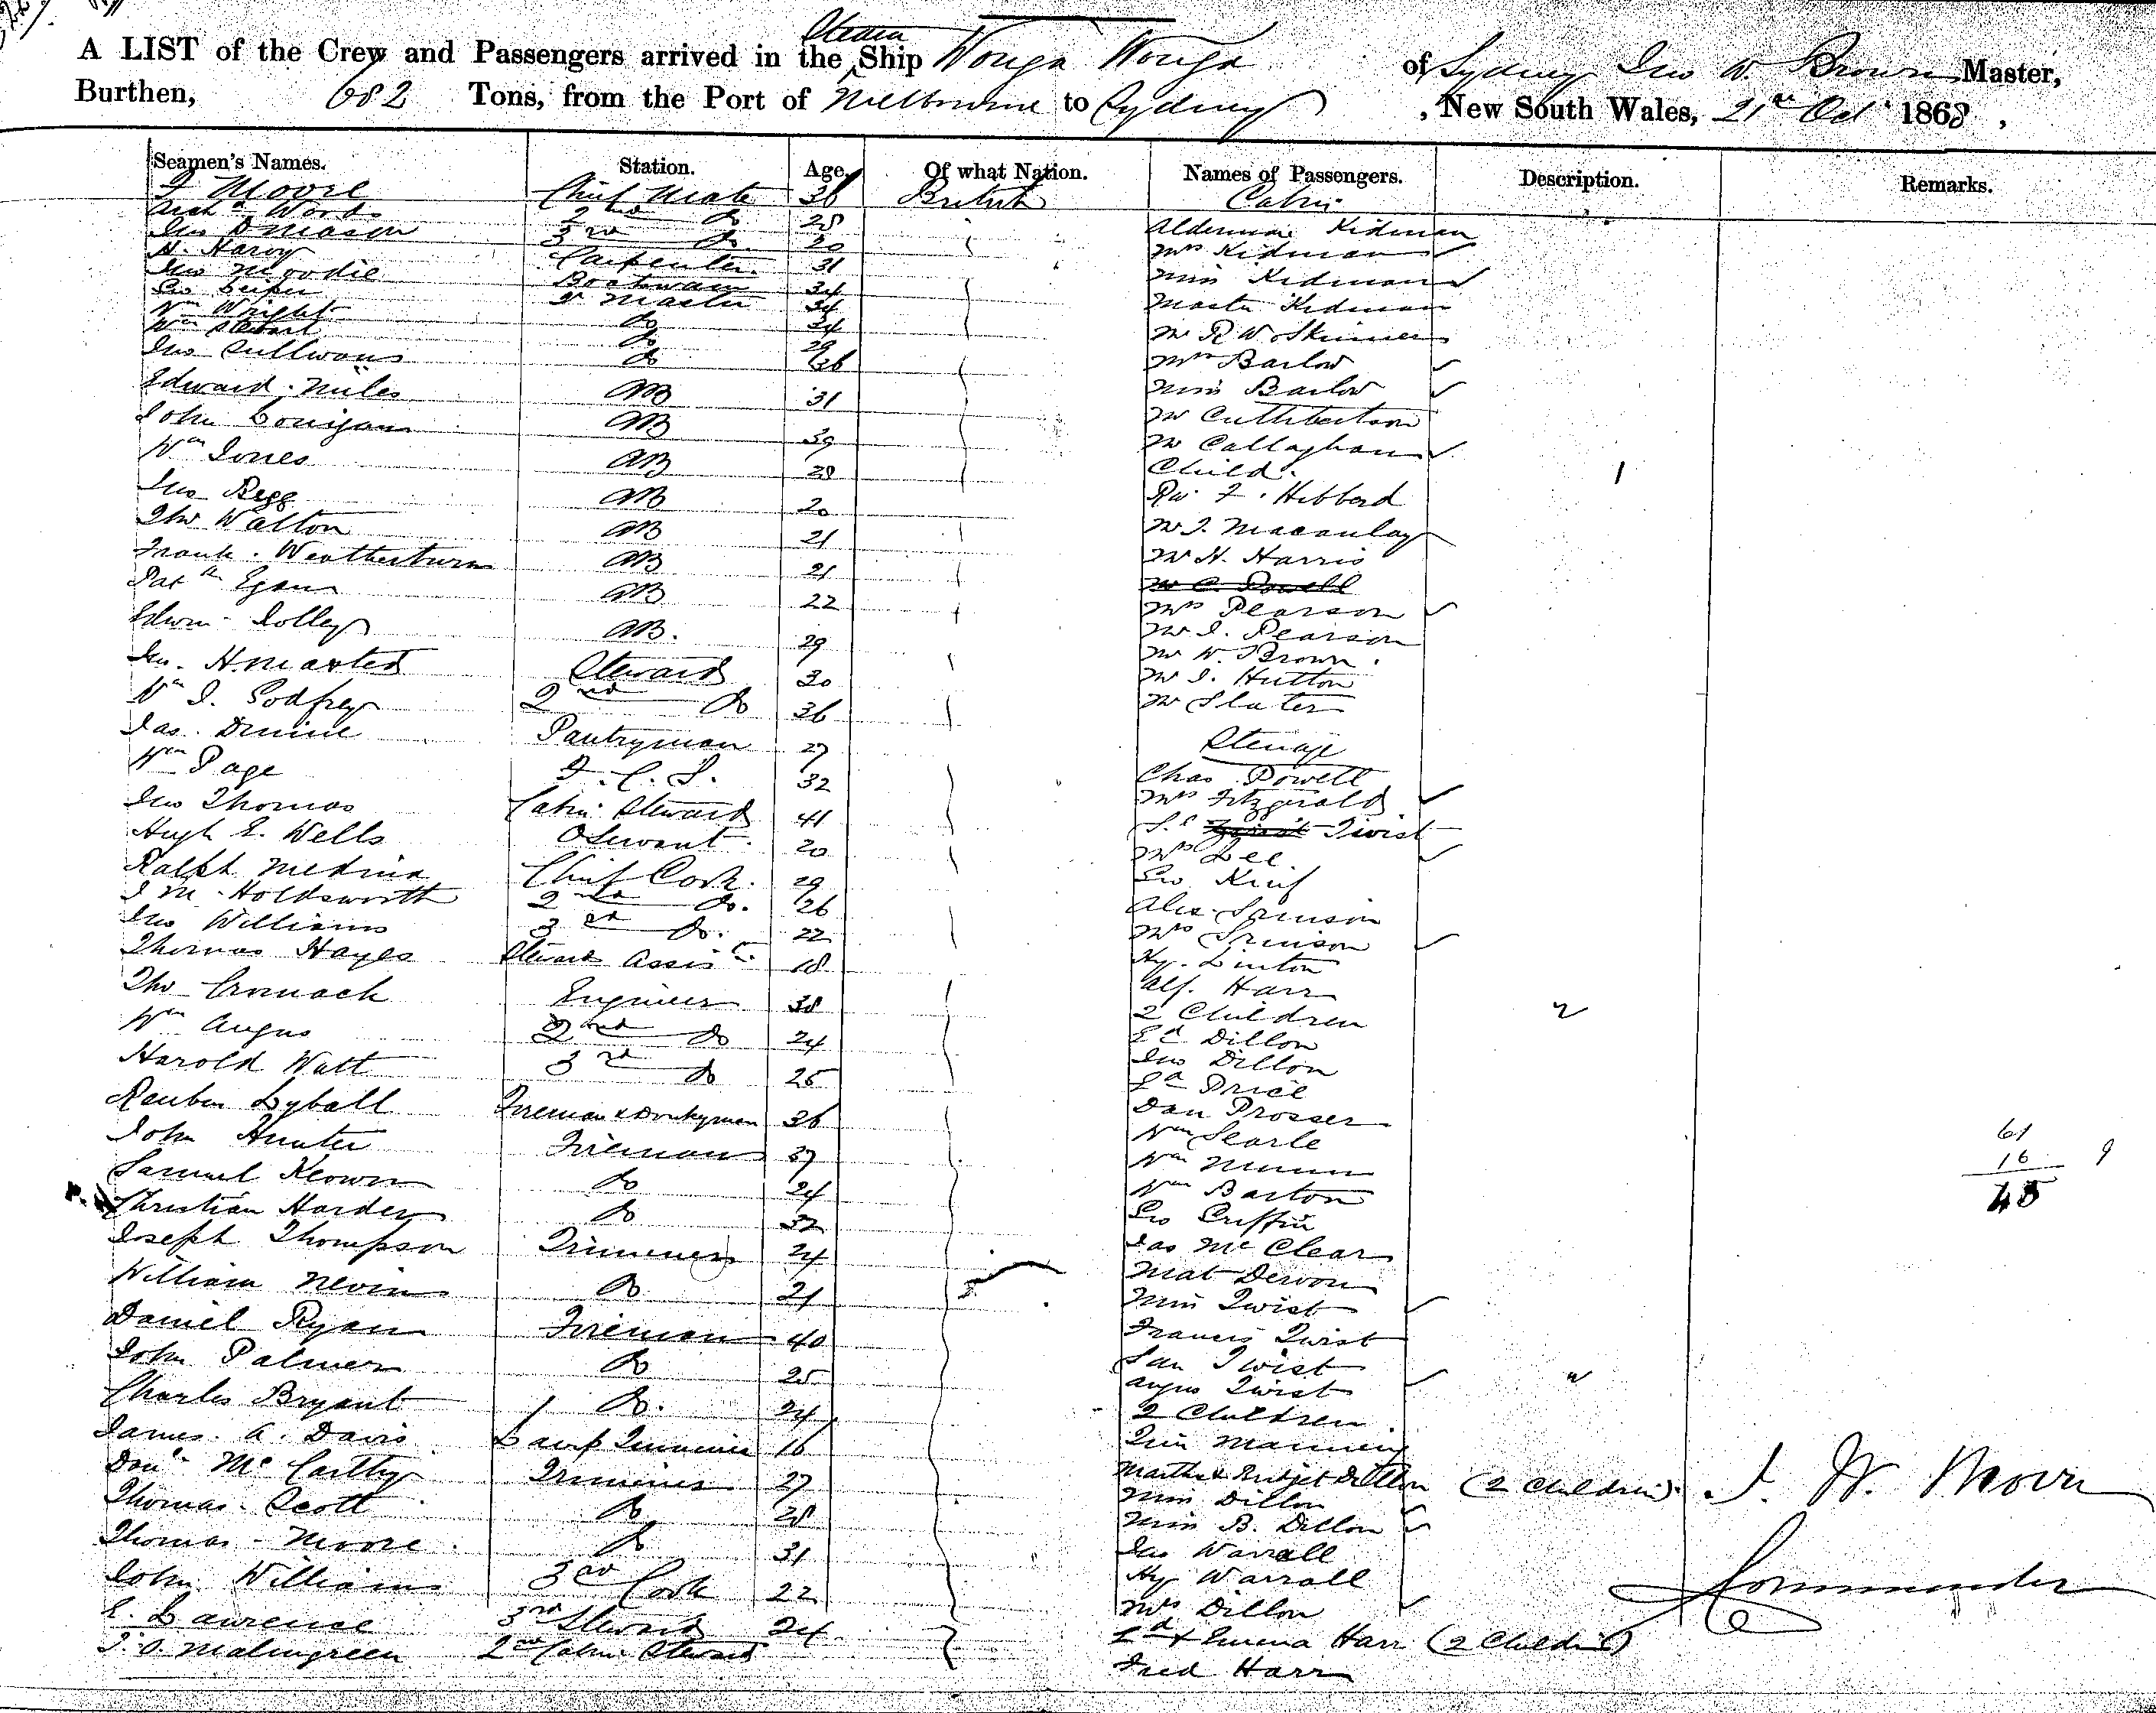 A LIST of the Crew and Passengers arrived in the Steam Ship Wonga Wonga of Sydney Jno W. Brown Master,
Burthen, 682 Tons, from the Port of Melbourne to Sydney, New South Wales, 21st Oct 1868,
Seamen's Names. Station. Age. Of what Nation. Names of Passengers. Description. Remarks.
Moore Chief Mate 36 British Cabin
Archd Woods 2nd do 28 Alderman Kidman
Jno Mason 3rd do 20 Mrs Kidman
H. Harvy Carpenter 31 Miss Kidman
Jno Moodie Boatswain 34 Master Kidman
Geo Master 34
Wm Wright do 34 Mr R W Skinner
Wm Stewart do 29
Jno Sullivans do 26 Mrs Barlow
Edward Miles AB 31 Miss Barlow
John Conigan AB 39 Mr Cuthbertson
Wm Jones AB 28 Mr Callaghan
Child 1
Jno Begg AB 20 Rev F. Hibberd
Thos Walton AB 21 Mr J. Macaulay
Frank Weatherburn AB 21 Mr H. Harris
Patk Egan AB 22 Mr C. Powell
Mrs Pearson
Edwin Jolley AB. 29 Mr J. Pearson
Mr W. Brown.
Jno. H. Maxted Steward 30 Mr J. Hutton
Wm J. Godfrey 2nd do 36 Mr Slater
Jas. Pantryman 27 Steerage
Wm Page F. C. S. 32 Chas Powell
Jno Thomas Cabin Steward 41 Mrs Fitzgerald
Hugh E. Wells 20 Twist
Mrs Lee
Ralph Medina Chief Cook. 29 Geo
J M Holdsworth 2nd do. 26 Alex
Jno Williams 3rd do. 22 Mrs
Thomas Hayes Steward Assist 18 Hy. Linton
Alf. Harr
Thos Cromack Engineer 38 2 Children 2
Wm Angus 2nd do 24 Ed Dillon
Harold Watt 3rd do 25 Jno Dillon
Price
Reuben Lyball Fireman & Donkeyman 36 Dan Prosser
John Hunter Fireman 37 Wm Searle 61
Wm Munn 16 9
Samuel Klown do 24 Wm Barton 45
Christian Harder do 32 Geo Griffin
Joseph Thompson Trimmer 24 Jas McClear
William Nevin do 21 Mat
Miss Twist
Daniel Ryan Fireman 40 Francis Twist
John Palmer do 25 Twist
Charles Bryant do. 24 Agnes Twist 2
2 Children
James. A. Davis Lamp Trimmer 16 Manning
Danl McCarthy Trimmer 27 Martha & Bridget Dillon (2 Children). J. W. Brown
Thomas Scott do 28 Miss Dillon
Miss B. Dillon
Thomas Moore do 31 Jno Warrall
John Williams 3rd Cook 22 Hy Warrall Commander
E. Lawrence 3rd Steward 24 Mrs Dillon
J. O. Malmgreen 2nd Cabin Steward & Emma Harr (2 Children)
Fred Harr